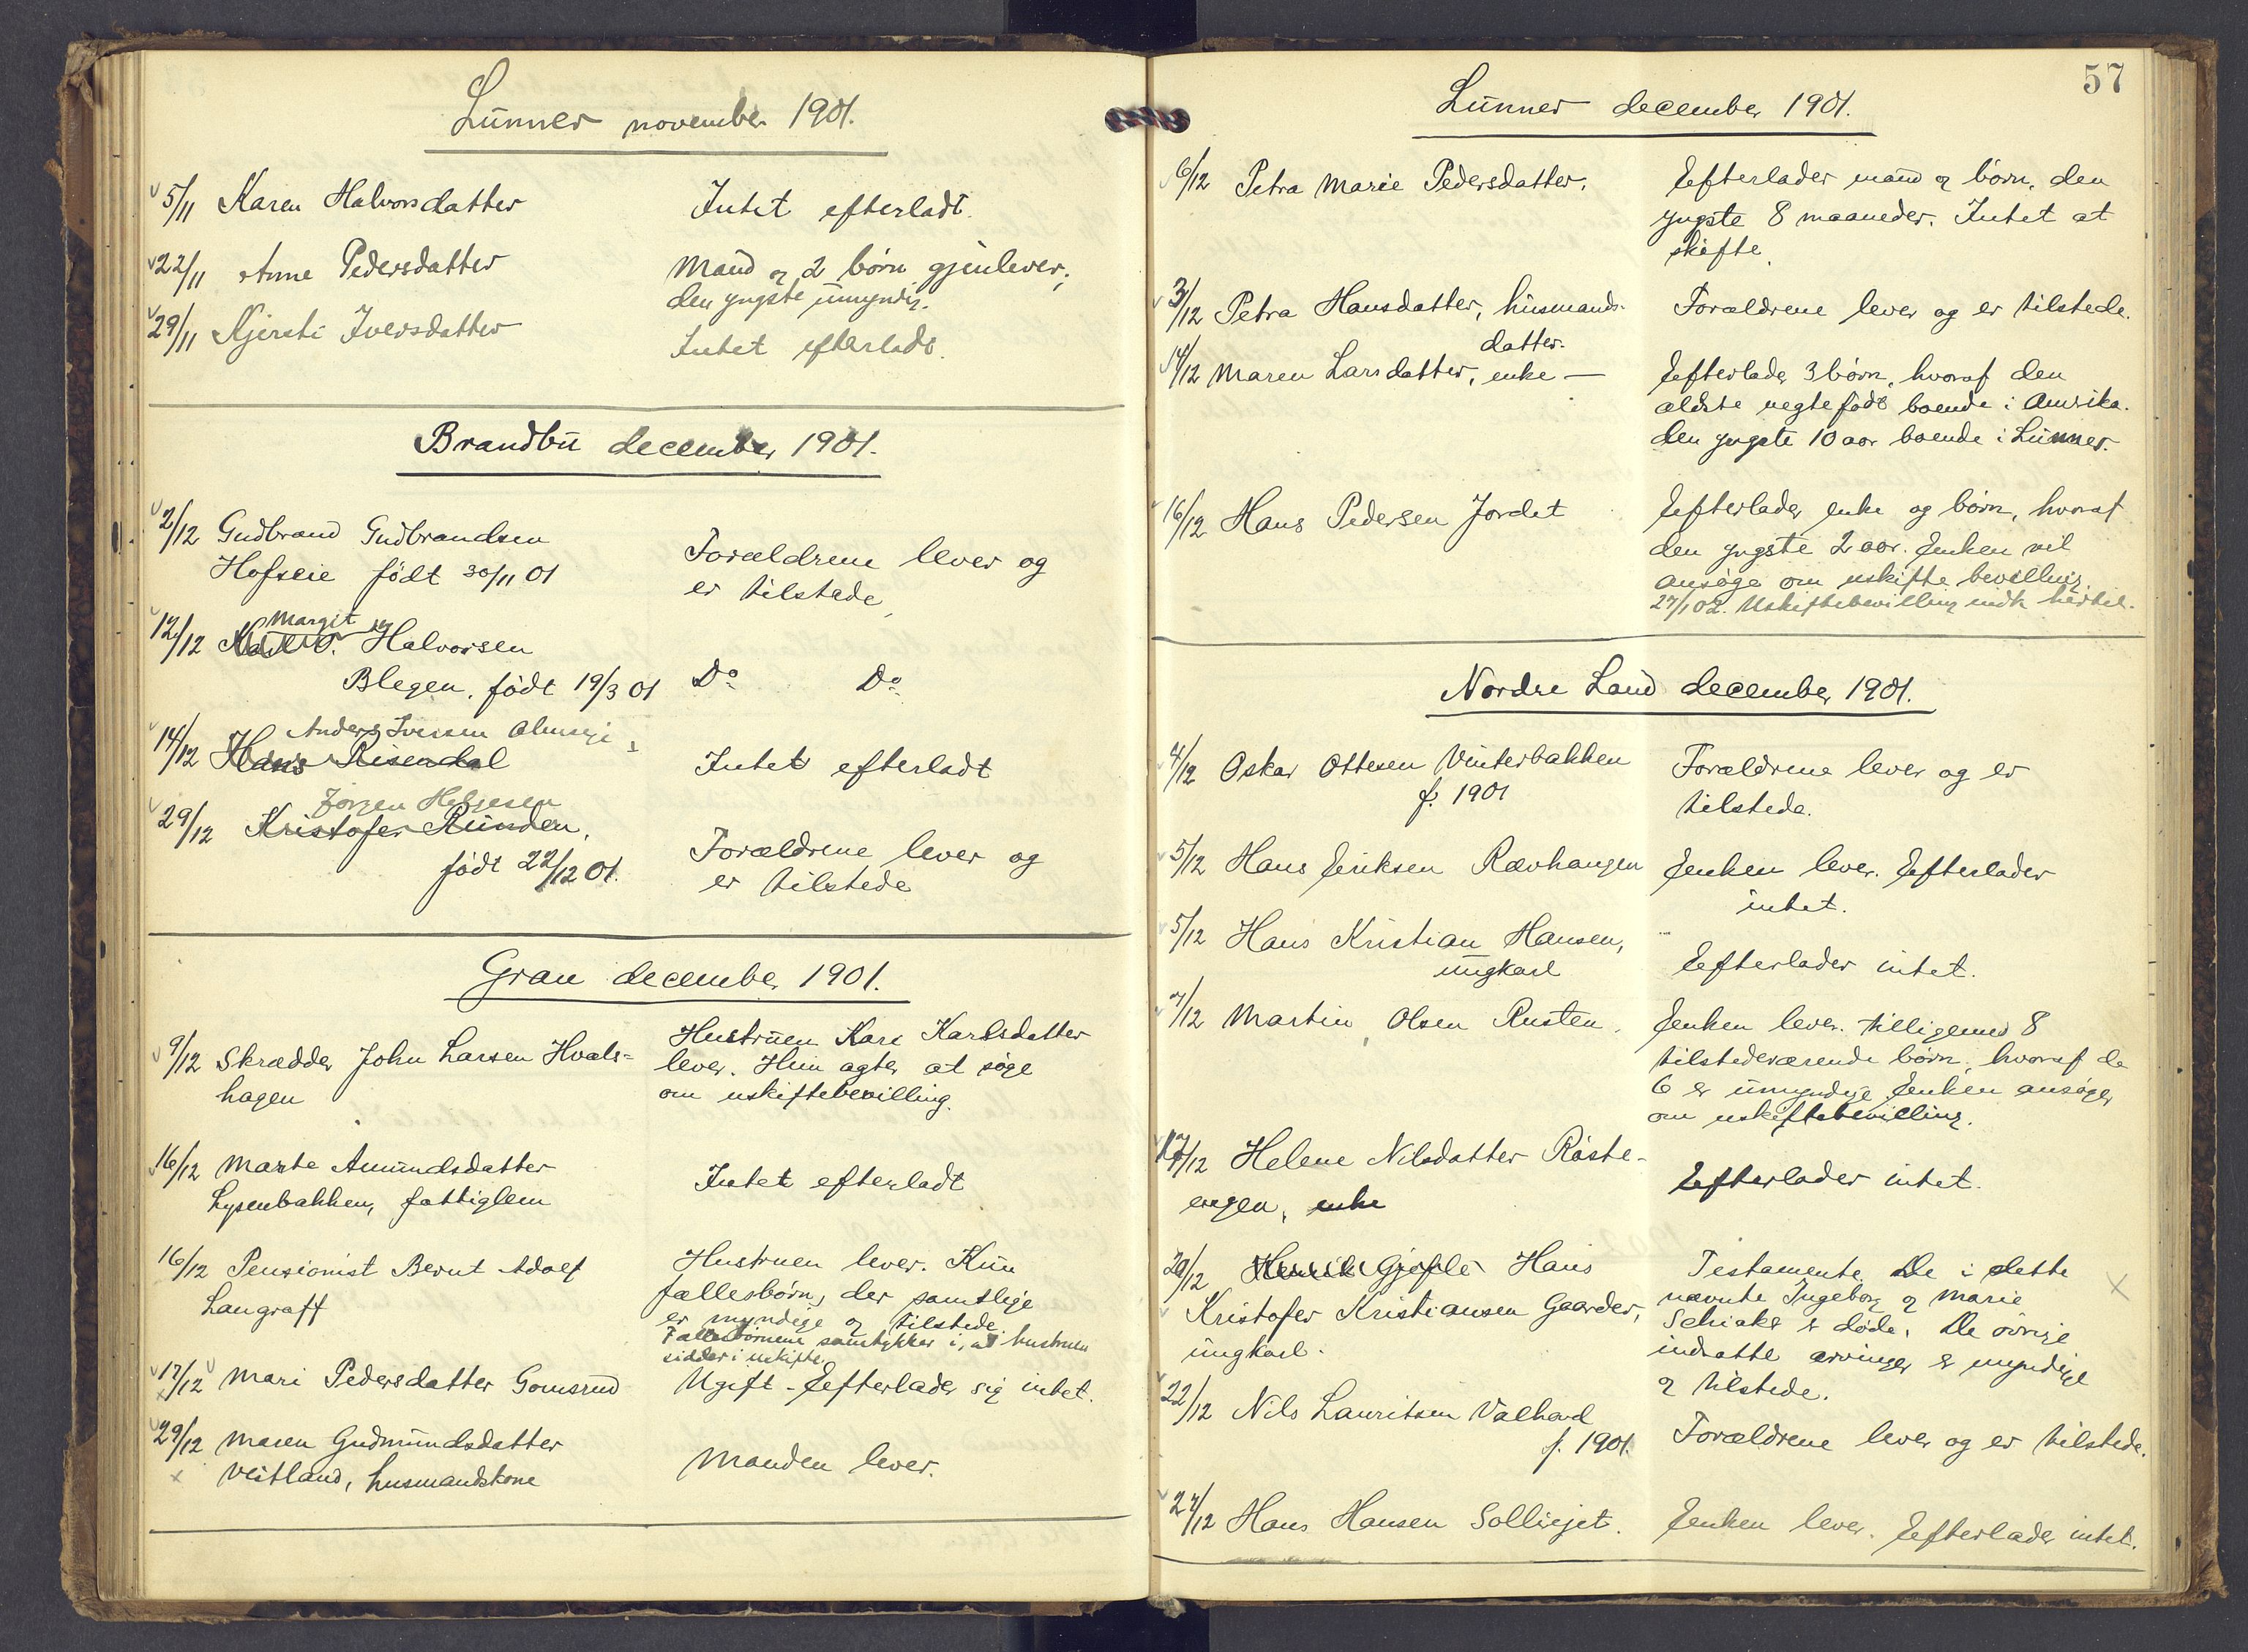 Lunner november 1901.
5/11 Karen Halvorsdatter Intet efterladt.
22/11 Anne Pedersdatter Mand og 2 børn gjenlever,
den yngste umyndig.
29/11 Kjersti Iversdatter Intet efterladt.
Brandbu december 1901.
2/12 Gudbrand Gudbrandsen
Hofseie født 30/11 01
Forældrene lever og
er tilstede
Margit
12/12 Halvorsen
Blegen, født 19/3 01 Do Do
Anders Iversen
14/12 Hans Risendal Intet efterladt
Jørgen Helgesen
29/12 Kristofer Runden,
født 22/12 01.
Forældrene lever og
er tilstede
Gran december 1901.
9/12 Skrædder John Larsen Hvals-
hagen
Hustruen Kari Karlsdatter
lever. Hun agter at søge
om uskiftebevilling.
16/12 Marte Amundsdatter
Lysenbakken, fattiglem
Intet efterladt
16/12 Pensionist Bernt Adolf
Langraff
Hustruen lever. Kun
fællesbørn, der samtlige
er myndige og tilstede.
Fællesbørnene samtykker i, at hustruen
sidder i uskifte.
17/12 Mari Pedersdatter Gomsrud Ugift - Efterlader sig intet.
29/12 Maren Gudmundsdatter
Vestland, husmandskone
Manden lever.
57
Lunner december 1901.
6/12 Petra Marie Pedersdatter. Efterlader mand og børn, den
yngste 8 maaneder. Intet at
skifte.
3/12 Petra Hansdatter, husmands-
datter.
Forældrene lever og er tilstede.
14/12 Maren Larsdatter, enke — Efterlader 3 børn, hvoraf den
ældste uegte født boende i Amerika.
den yngste 10 aar boende i Lunner.
16/12 Hans Pedersen Jordet Efterlader enke og børn, hvoraf
den yngste 2 aar. Enken vil
ansøge om uskifte bevilling.
27/1 02. Uskiftebevilling indk hertil.
Nordre Land december 1901.
4/12 Oskar Ottesen Vinterbakken
f. 1901
Forældrene lever og er
tilstede.
5/12 Hans Eriksen Rævhaugen Enken lever. Efterlader
intet.
5/12 Hans Kristian Hansen,
ungkarl
Efterlader intet.
7/12 Martin Olsen Rusten. Enken lever tilligemed 8
tilstedeværende børn, hvoraf de
6 er umyndige Enken ansøger
om uskiftebevilling.
17/12 Helene Nilsdatter Røste-
engen, enke
Efterlader intet.
20/12 Henrik Gjøfle Hans
Kristofer Kristiansen Gaarder,
ungkarl.
Testamente. De i dette
nævnte Ingeborg og Marie
er døde. De øvrige
indsatte arvinger er myndige
og tilstede.
22/12 Nils Lauritsen Valhovd
f. 1901.
Forældrene lever og er tilstede.
27/12 Hans Hansen Solliejet. Enken lever. Efterlader intet.